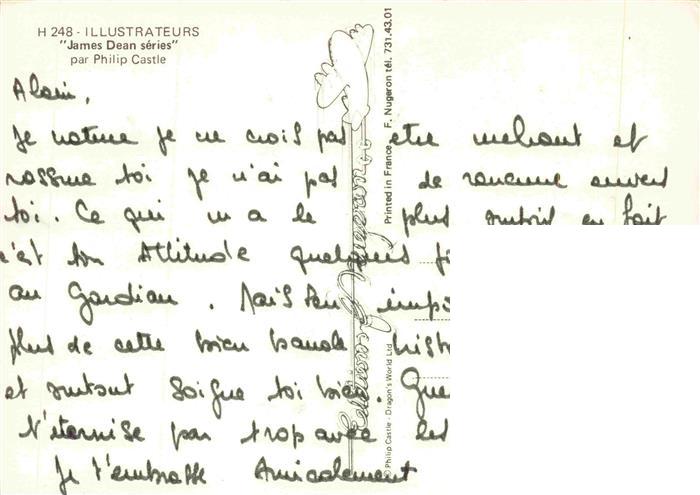 H 248 - ILLUSTRATEURS
"James Dean séries"
par Philip Castle
Alain,
Je nature je ne crois pas être méhant et
rassure toi je n'ai pas de rancune envers
toi. Ce qui m a le plus surtout en fait
c'est ton Attitude quelques
au Gardian. Mais
plus de cette bien banale
et surtout soigne toi bien. Que
t'éternise pas trop avec les
Je t'embrasse Amicalement
Editions F. Nugeron
© Philip Castle - Dragon's World Ltd
Printed in France
F. Nugeron tél. 731.43.01